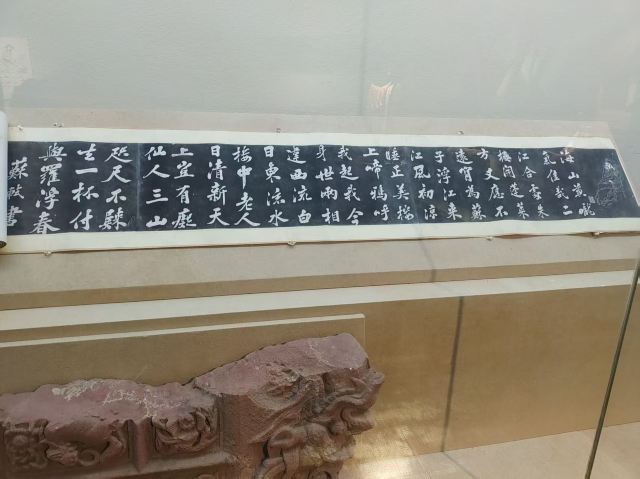 海山葱曨
氣佳哉二
江合處朱
樓開蓬萊
方丈應不
遠肯為蘇
子浮江來
江風初涼
睡正美樓
上啼鴉呼
我起我今
身世兩相
違西流白
日東流水
樓中老人
日清新天
上豈有癡
仙人三山
咫尺不歸
去一杯付
與羅浮春
蘇軾書